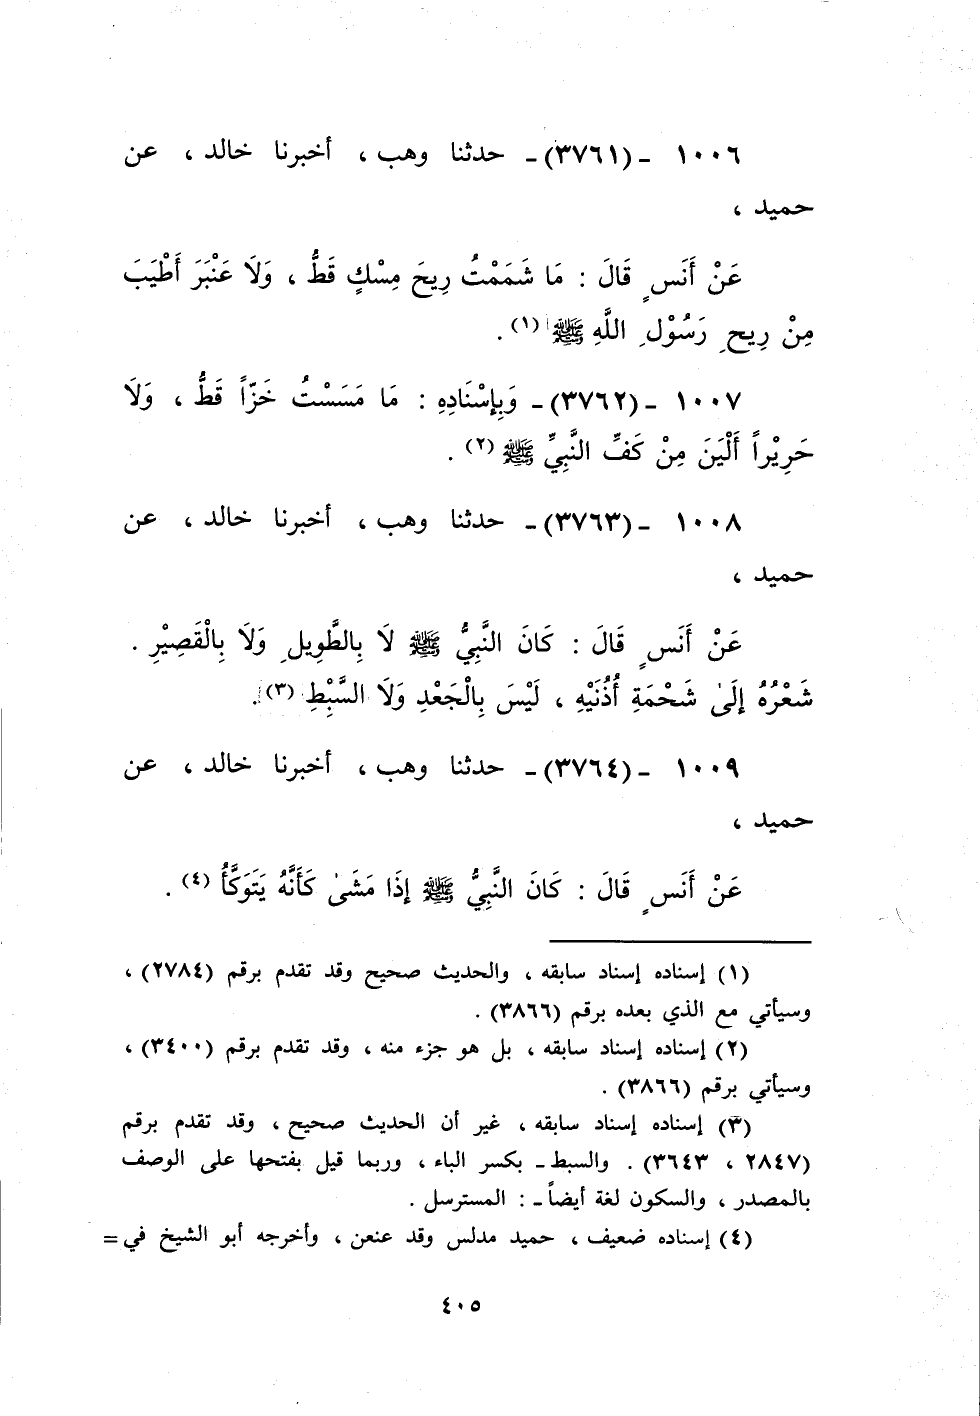 ١٠٠٦ - (٣٧٦١) - حدثنا وهب ، أخبرنا خالد ، عن
حميد ،
عَنْ أَنَسٍ قَالَ : مَا شَمَمْتُ رِيحَ مِسْكٍ قَطُّ ، وَلَا عَنْبَرَ أَطْيَبَ
مِنْ رِيحِ رَسُوْلِ اللَّهِ ﷺ (١) .
١٠٠٧ - (٣٧٦٢) - وَبِإِسْنَادِهِ : مَا مَسَسْتُ خَزّاً قَطُّ ، وَلَا
حَرِيْراً أَلْيَنَ مِنْ كَفِّ النَّبِيِّ ﷺ (٢) .
١٠٠٨ - (٣٧٦٣) - حدثنا وهب ، أخبرنا خالد ، عن
حميد ،
عَنْ أَنَسٍ قَالَ : كَانَ النَّبِيُّ ﷺ لَا بِالطَّوِيلِ وَلَا بِالْقَصِيْرِ .
شَعْرُهُ إِلَىٰ شَحْمَةِ أُذُنَيْهِ ، لَيْسَ بِالْجَعْدِ وَلَا السَّبْطِ (٣) .
١٠٠٩ - (٣٧٦٤) - حدثنا وهب ، أخبرنا خالد ، عن
حميد ،
عَنْ أَنَسٍ قَالَ : كَانَ النَّبِيُّ ﷺ إِذَا مَشَىٰ كَأَنَّهُ يَتَوَكَّأُ (٤) .
(١) إسناده إسناد سابقه ، والحديث صحيح وقد تقدم برقم (٢٧٨٤) ،
وسيأتي مع الذي بعده برقم (٣٨٦٦) .
(٢) إسناده إسناد سابقه ، بل هو جزء منه ، وقد تقدم برقم (٣٤٠٠) ،
وسيأتي برقم (٣٨٦٦) .
(٣) إسناده إسناد سابقه ، غير أن الحديث صحيح ، وقد تقدم برقم
(٢٨٤٧ ، ٣٦٤٣) . والسبط - بكسر الباء ، وربما قيل بفتحها على الوصف
بالمصدر ، والسكون لغة أيضاً - : المسترسل .
(٤) إسناده ضعيف ، حميد مدلس وقد عنعن ، وأخرجه أبو الشيخ في =
٤٠٥